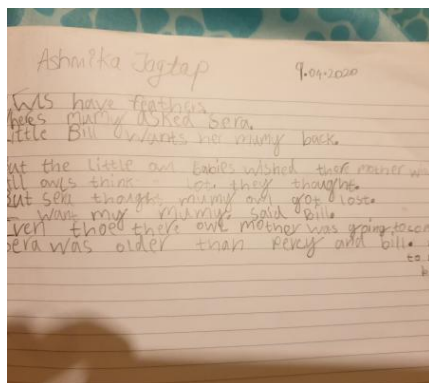 Ashmika Jagtap
9.04.2020
wls have feathers
heres mumy asked Sera.
ittle Bill wants her mumy back.
ut the little owl babies wished there mother
ll owls think lot they thought.
ut sera thought mumy owl got lost.
want my mumy. said Bill.
ven thoe there owl mother was going to
Sera was older than Percy and bill.
to